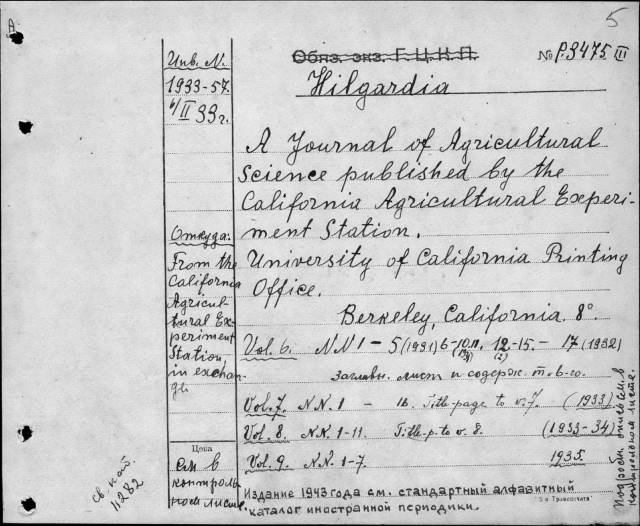 5
Инв. N.
1933-57.
6/II 33 г.
Обяз. экз. Г.Ц.К.П.
№ P.3475 III
Hilgardia
A Journal of Agricultural
Science published by the
California Agricultural Experi-
ment Station.
University of California Printing
Office.
Berkeley, California. 8°.
Откуда:
From the
California
Agricul-
tural Ex-
periment
Station,
in exchan-
ge
Vol. 6. NN 1 - 5 (1931) 6-10.11. 12-15. - 17 (1932)
Заглавн. лист и содерж. т. 6-го.
Vol. 7. NN. 1 - 16. Title-page to v. 7. (1933)
Vol. 8. NN. 1-11. Title-p. to v. 8. (1933-34)
Vol. 9. NN. 1-7. 1935.
Цена
см в
контроль-
ном листе.
Издание 1943 года см. стандартный алфавитный
каталог иностранной периодики.
св. кат.